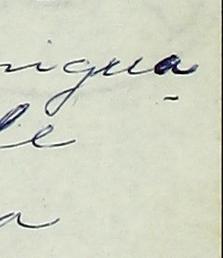 nigua
le
a